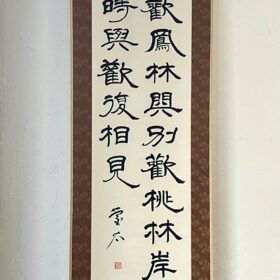 歡鳳林與別歡桃林岸
時與歡復相見